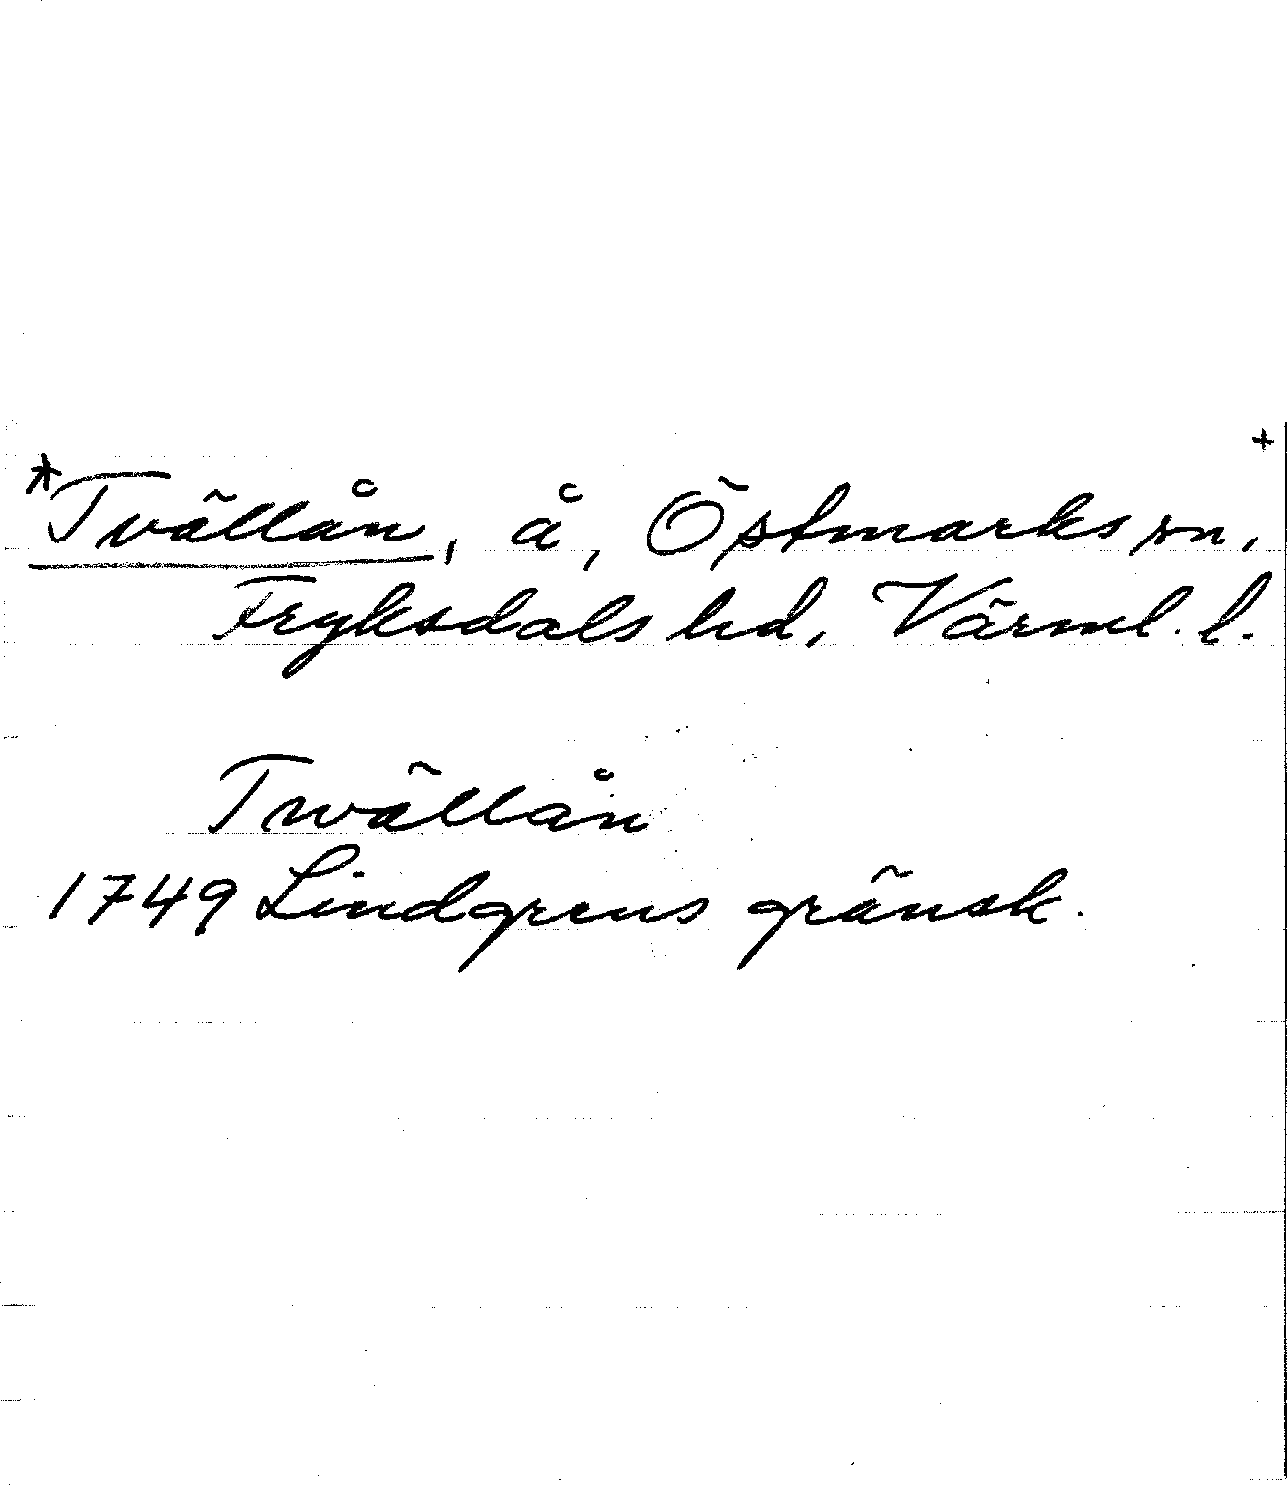 +
*Tvällån, å, Östmarks sn,
Fryksdals hd, Värml. l.
Twällån
1749 Lindgrens gränsk.